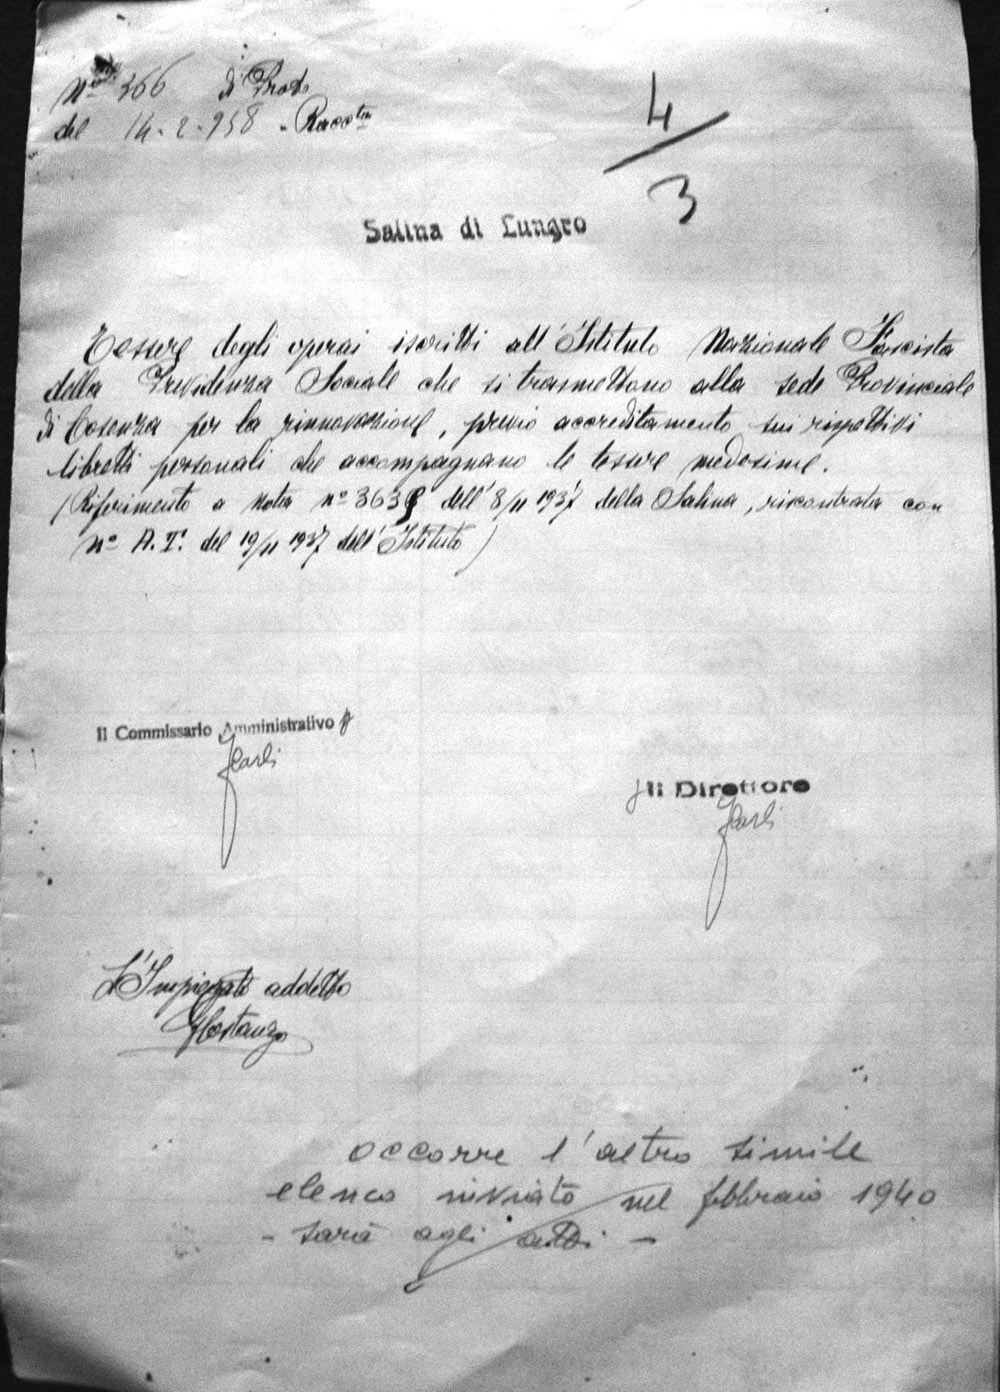 Nº 366 di Prot.
del 14-2-938 - Racc.ta
4/3
Salina di Lungro
Tessere degli operai iscritti all'Istituto Nazionale Fascista
della Previdenza Sociale che si trasmettono alla sede Provinciale
di Cosenza per la rinnovazione, previo accreditamento sui rispettivi
libretti personali che accompagnano le tessere medesime.
(Riferimento a nota nº 3638 dell'8/11 1937 della Salina, riscontrata con
nº A.T. del 19/11 1937 dell'Istituto)
Il Commissario Amministrativo
Il Direttore
L'Impiegato addetto
Costanzo
occorre l'altro simile
elenco inviato nel febbraio 1940
- sarà agli atti -